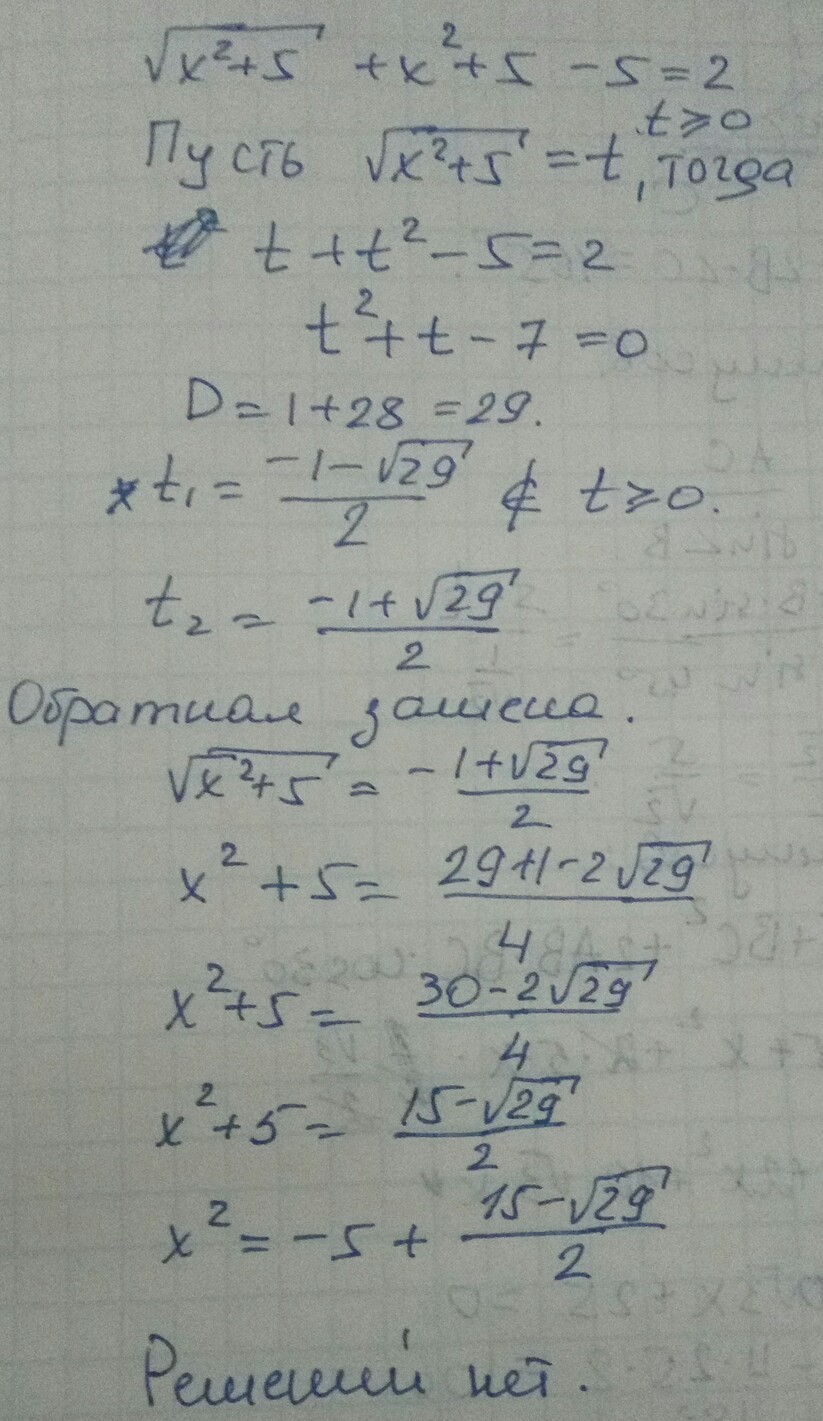 √(x²+5) + x² + 5 - 5 = 2
t ≥ 0
Пусть √(x²+5) = t, тогда
t + t² - 5 = 2
t² + t - 7 = 0
D = 1 + 28 = 29.
t₁ = (-1-√29)/2 ∉ t ≥ 0.
t₂ = (-1+√29)/2
Обратная замена.
√(x²+5) = (-1+√29)/2
x² + 5 = (29+1-2√29)/4
x² + 5 = (30-2√29)/4
x² + 5 = (15-√29)/2
x² = -5 + (15-√29)/2
Решений нет.